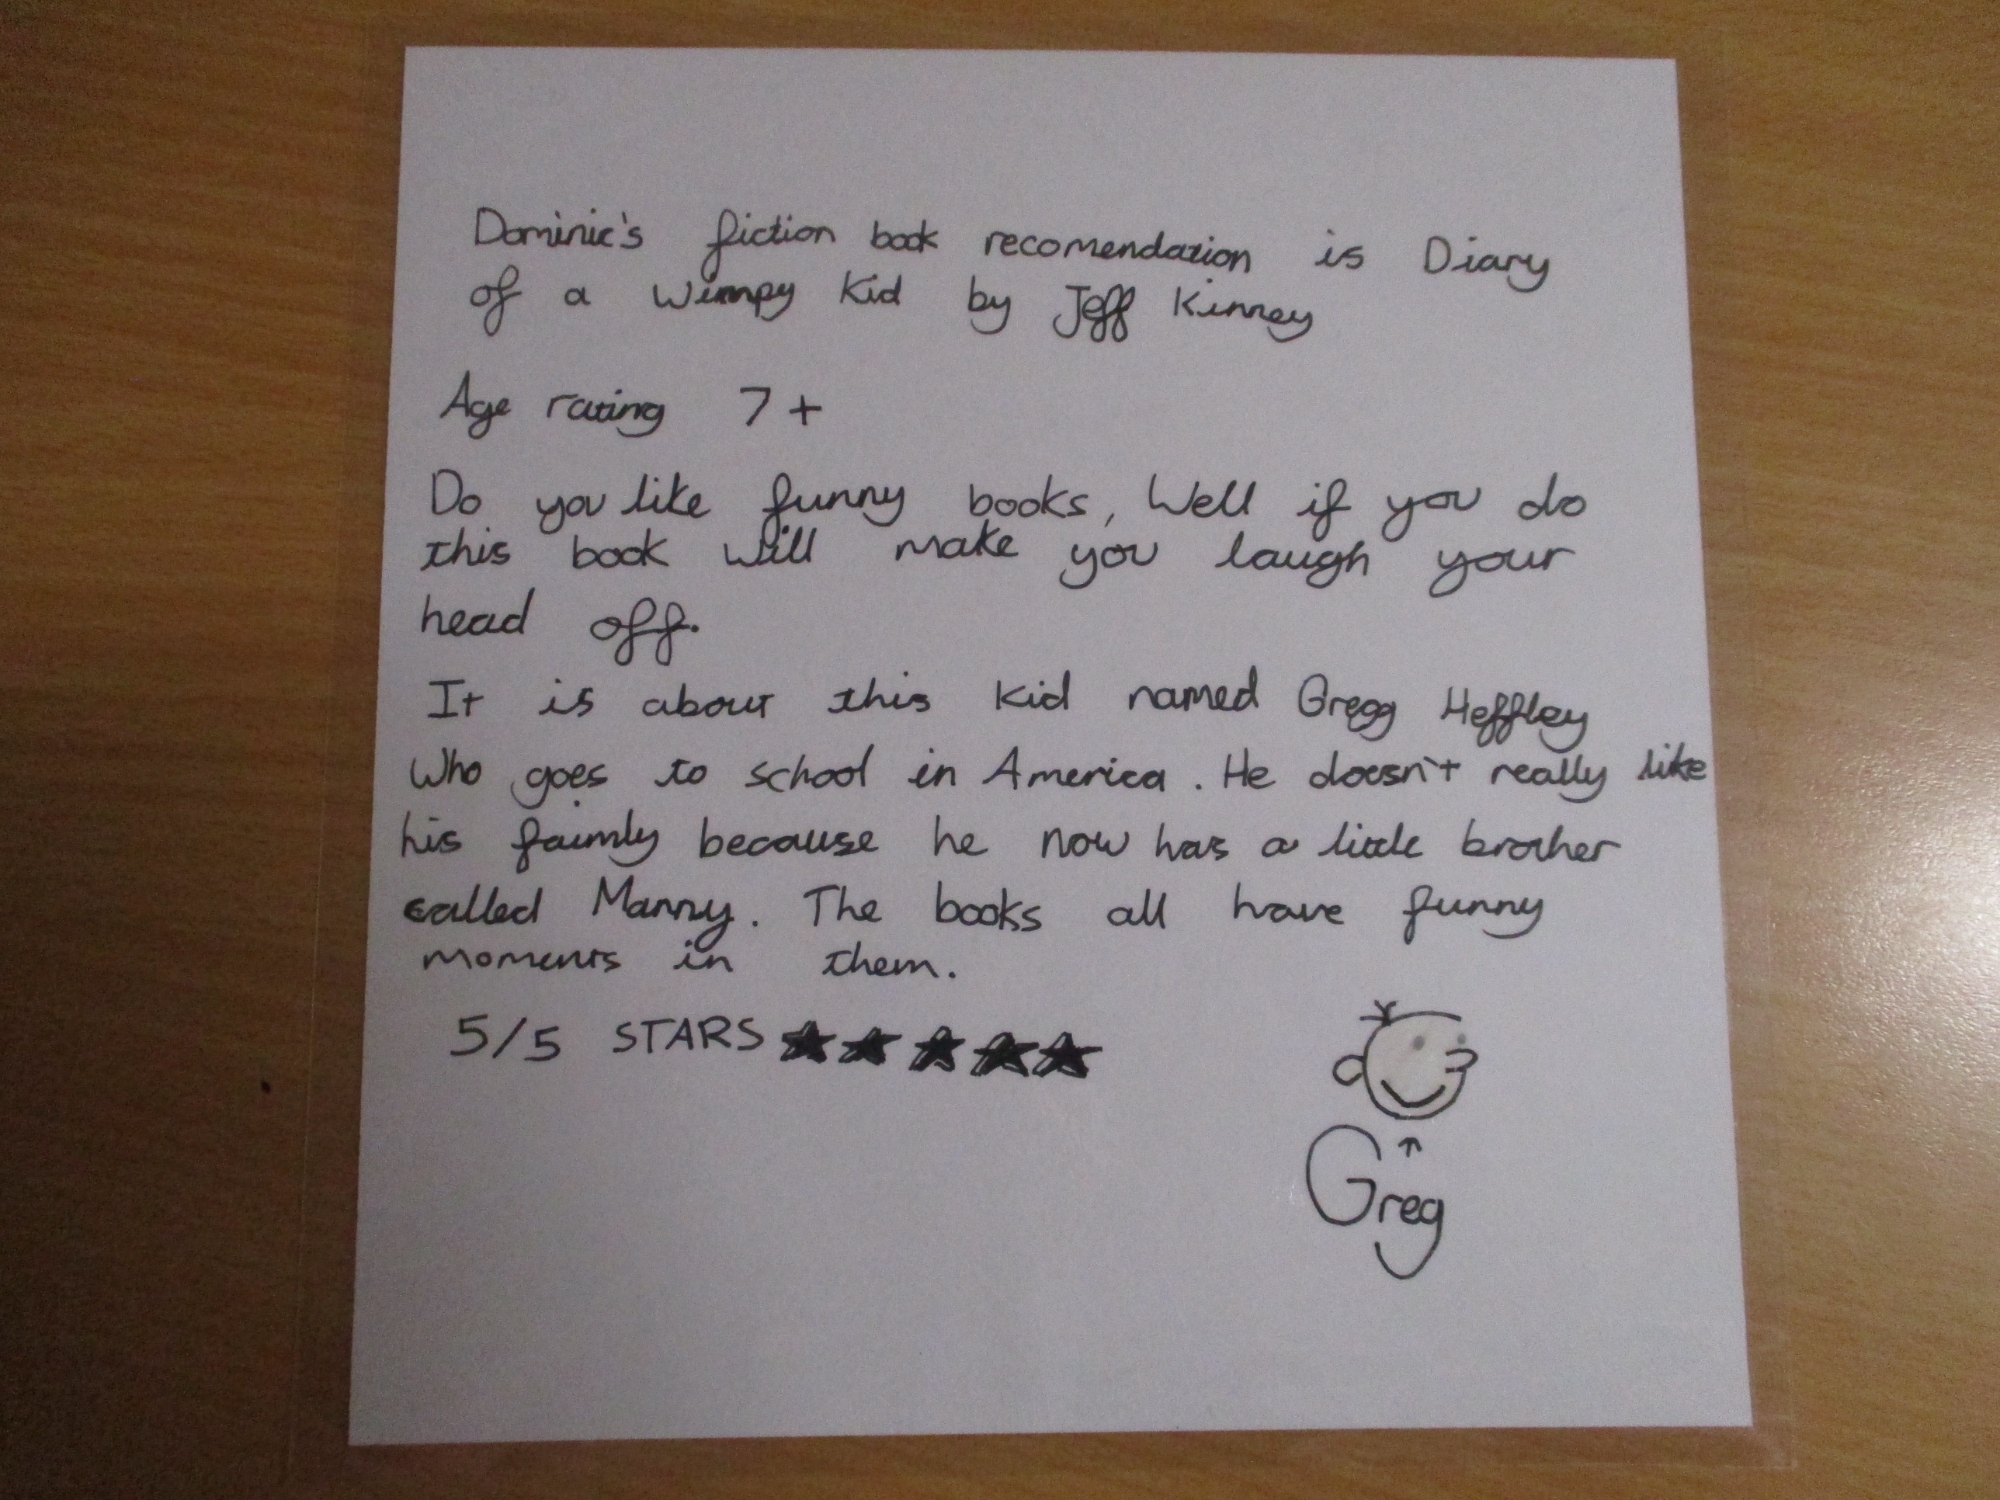 Dominic's fiction book recomendation is Diary
of a Wimpy Kid by Jeff Kinney
Age rating 7+
Do you like funny books, Well if you do
this book will make you laugh your
head off.
It is about this kid named Gregg Heffley
Who goes to school in America. He doesn't really like
his faimly because he now has a little brother
called Manny. The books all have funny
moments in them.
5/5 STARS ★★★★★
Greg